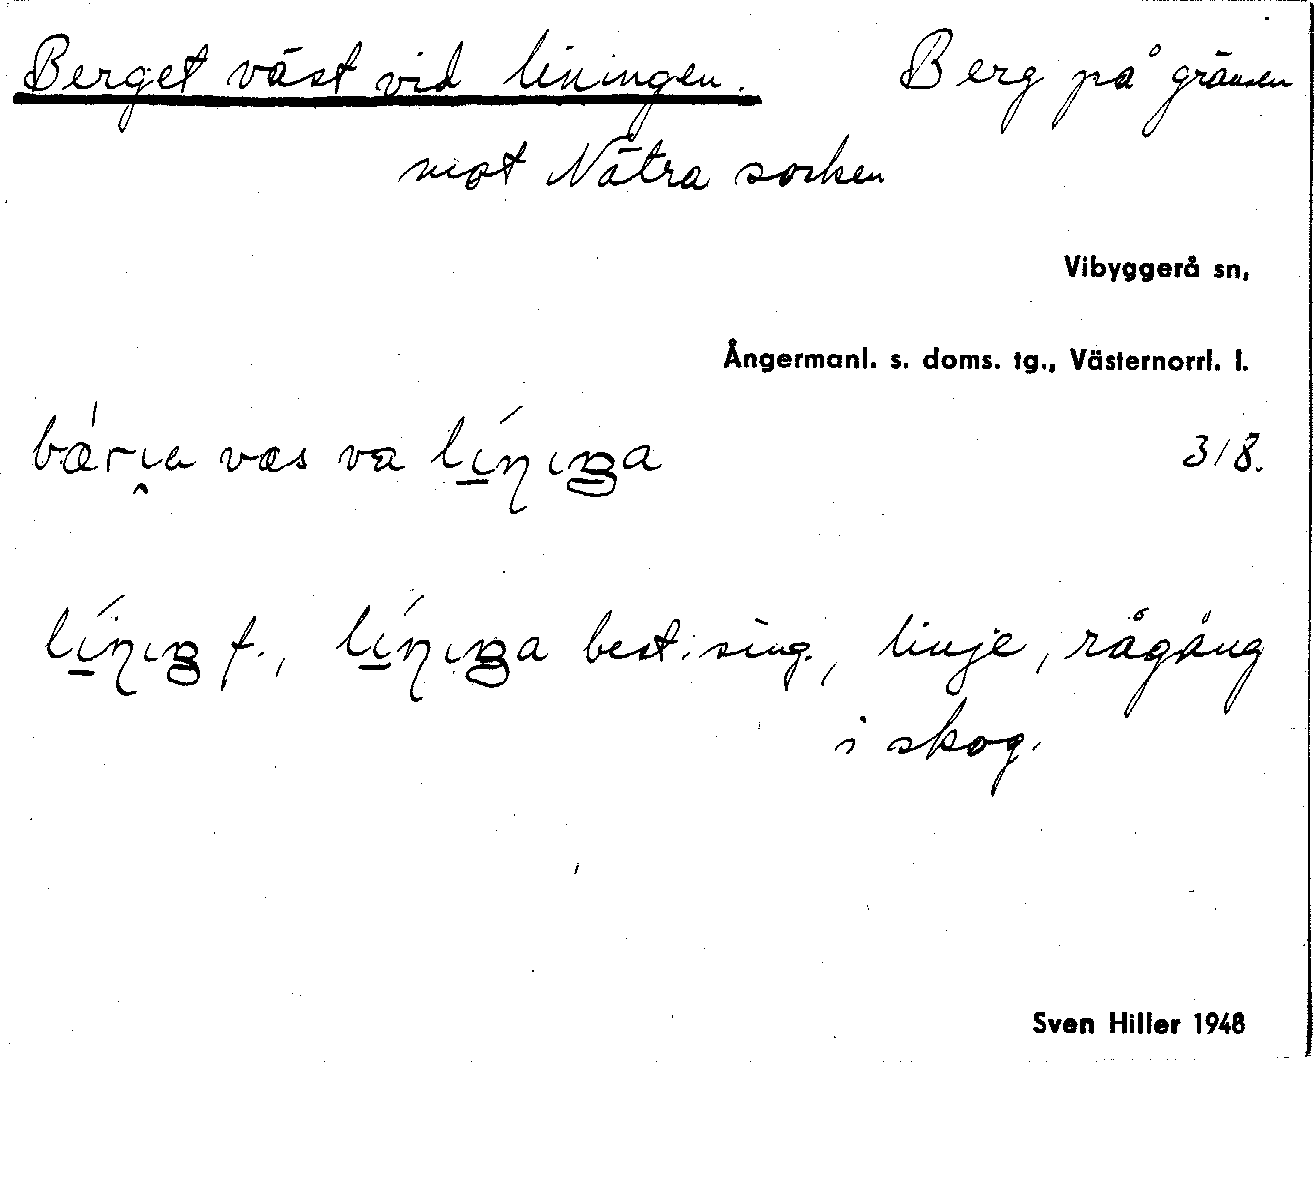 Berget väst vid liningen. Berg på gränsen
mot Nätra socken
Vibyggerå sn,
Ångermanl. s. doms. tg., Västernorrl. l.
vas va 318.
f., best. sing., linje, rågång
i skog.
Sven Hiller 1948